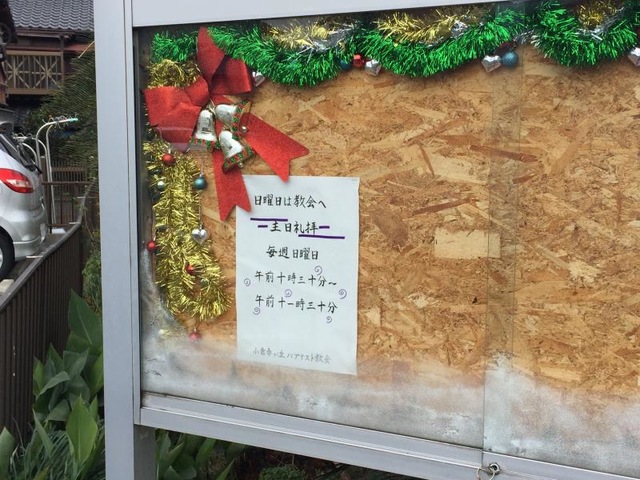 日曜日は教会へ
－主日礼拝－
毎週日曜日
午前十時三十分～
午前十一時三十分
バプテスト教会